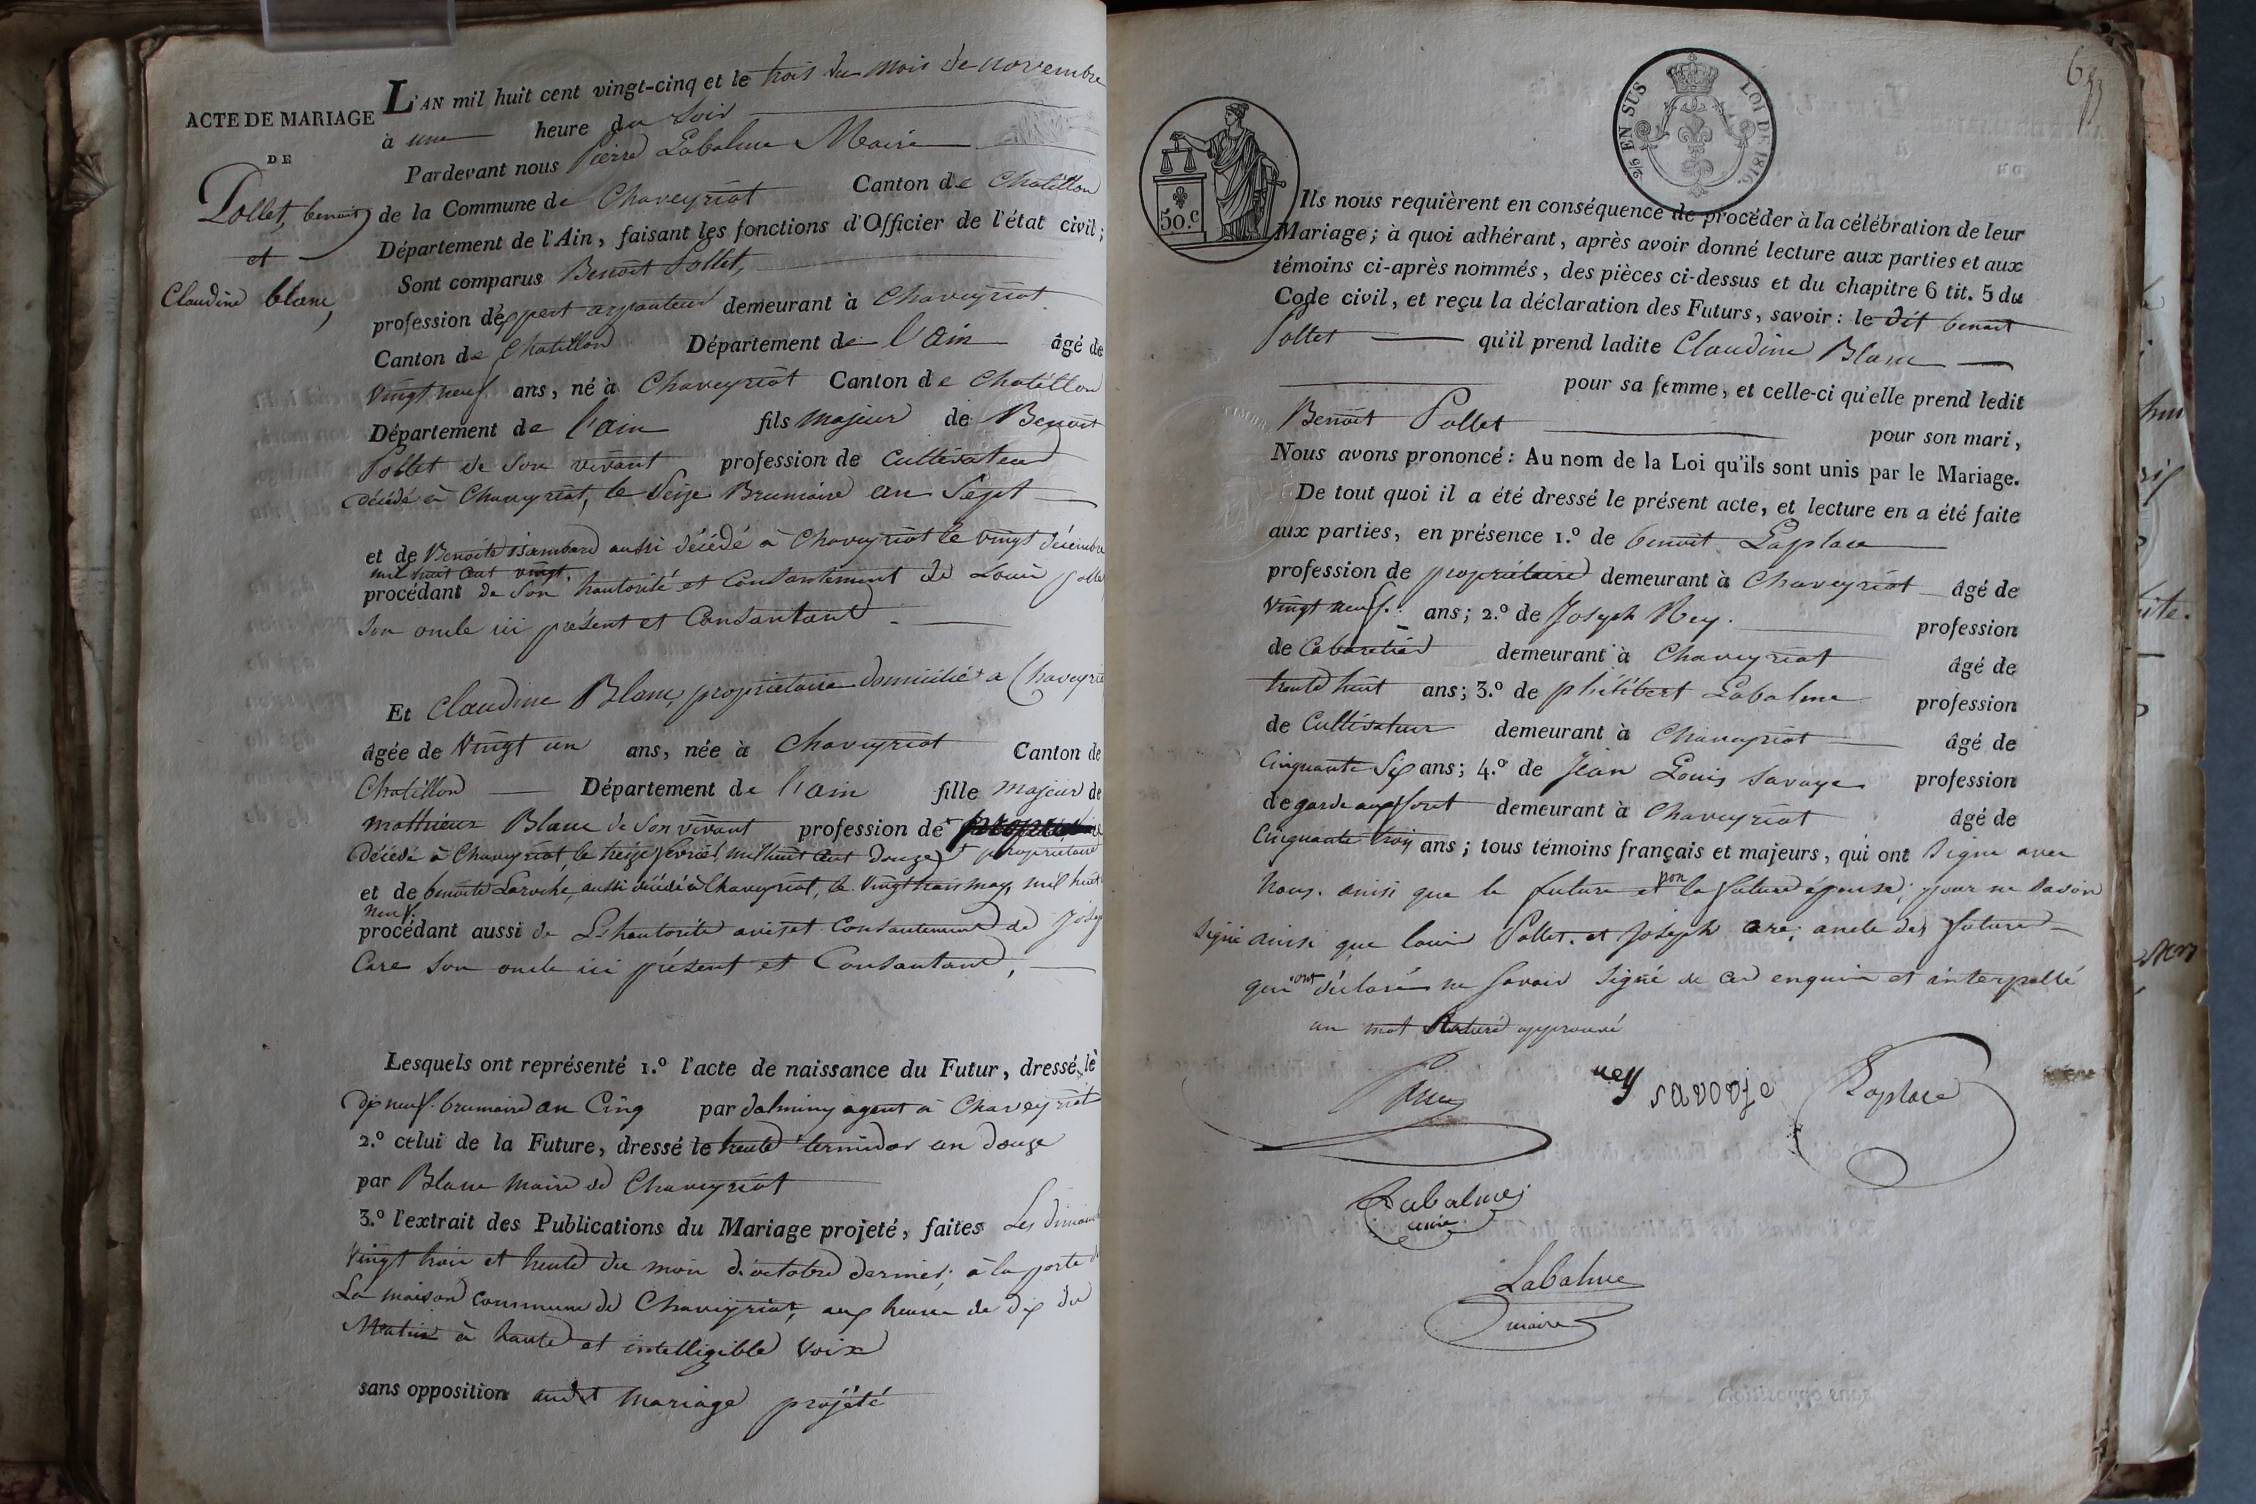 ACTE DE MARIAGE
DE
Pollet, benoit
et
Claudine blanc,
L'AN mil huit cent vingt-cinq et le trois du mois de novembre
à une heure du soir
Pardevant nous Pierre Labalme Maire
de la Commune de Chaveyriat Canton de Chatillon
Département de l'Ain, faisant les fonctions d'Officier de l'état civil;
Sont comparus Benoit Pollet,
profession d'expert arpanteur demeurant à Chaveyriat
Canton de Chatillon Département de l'ain âgé de
vingt neuf ans, né à Chaveyriat Canton de Chatillon
Département de l'ain fils majeur de Benoit
Pollet de son vivant profession de cultivateur
décédé à Chaveyriat, le seize Brumaire an sept
et de Benoite isambard aussi décédé à Chaveyriat le vingt décembre
mil huit cent vingt.
procédant de son hautorité et Consantement de Louis polle
son oncle ici présent et Consantant
Et Claudine Blanc, propriétaire domicilié a Chaveyria
âgée de vingt un ans, née à Chaveyriat Canton de
Chatillon Département de l'ain fille majeur de
mathieux Blanc de son vivant profession de
décédé à Chaveyriat le treize fevrier mil huit cent douze propriétaire
et de benoite Laroche, aussi décédé à Chaveyriat, le vingt trois may, mil huit
neuf.
procédant aussi de L'hautorité avis et Consantement de Josep
Care son oncle ici présent et Consantant,
Lesquels ont représenté 1.º l'acte de naissance du Futur, dressé le
dix neuf brumaire an Cinq par dalminy agent à Chaveyriat
2.º celui de la Future, dressé le trente termidor an douze
par Blanc maire de Chaveyriat
3.º l'extrait des Publications du Mariage projeté, faites Les dimanc
vingt trois et trente du mois d'octobre dernier, à la porte d
La maison commune de Chaveyriat, aux heures de dix du
Matin à haute et intelligible voix
sans opposition audit mariage projété
50.C
2/5 EN SUS LOI DE 1816.
Ils nous requièrent en conséquence de procéder à la célébration de leur
Mariage; à quoi adhérant, après avoir donné lecture aux parties et aux
témoins ci-après nommés, des pièces ci-dessus et du chapitre 6 tit. 5 du
Code civil, et reçu la déclaration des Futurs, savoir: le dit benoit
Pollet qu'il prend ladite Claudine Blanc
pour sa femme, et celle-ci qu'elle prend ledit
Benoit Pollet pour son mari,
Nous avons prononcé: Au nom de la Loi qu'ils sont unis par le Mariage.
De tout quoi il a été dressé le présent acte, et lecture en a été faite
aux parties, en présence 1.º de benoit Laplace
profession de propriétaire demeurant à Chaveyriat âgé de
vingt neuf. ans; 2.º de Joseph Rey. profession
de Cabaretier demeurant à Chaveyriat âgé de
trente huit ans; 3.º de philibert Labalme profession
de Cultivateur demeurant à Chaveyriat âgé de
Cinquante six ans; 4.º de Jean Louis savoye profession
de garde aux foret demeurant à Chaveyriat âgé de
Cinquante trois ans; tous témoins français et majeurs, qui ont signé avec
nous. ainsi que le future et non la future épouse; pour ne savoir
signé ainsi que louis Pollet. et Joseph Care, oncle des future
qui ont déclaré ne savoir signé de ce enquis et interpellé
un mot raturé approuvé
rey savoye Laplace
Labalme
Labalme
maire